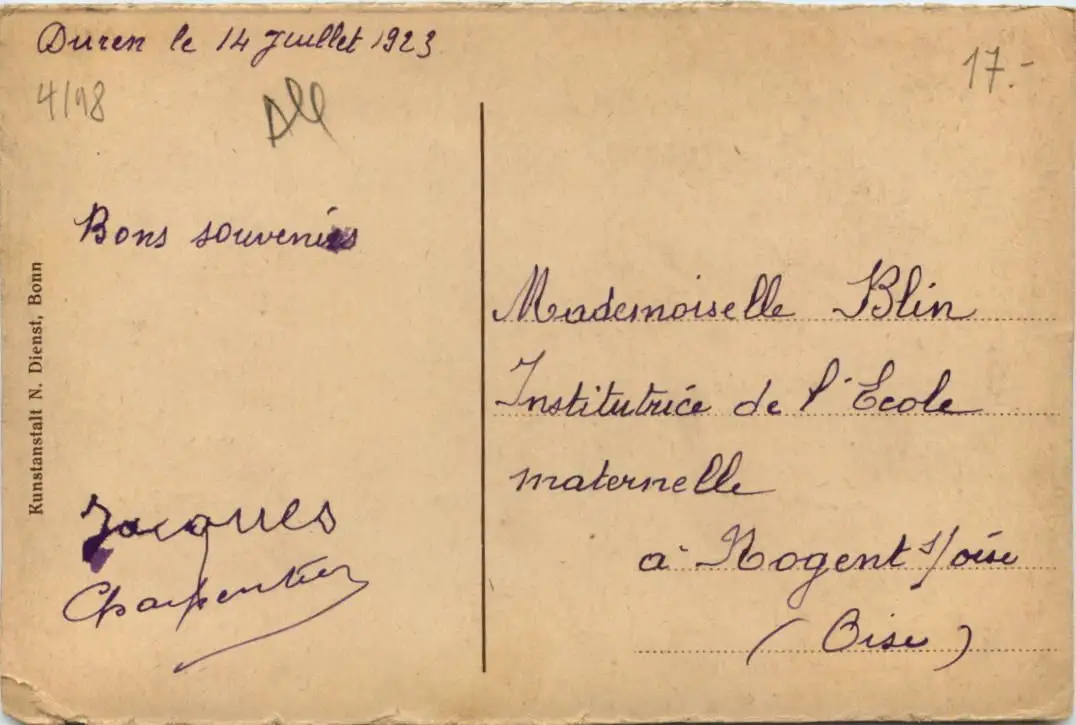 Duren le 14 Juillet 1923
17.-
4/98
Bons souvenirs
Kunstanstalt N. Dienst, Bonn
Jacques
Charpentier
Mademoiselle Blin
Institutrice de l'Ecole
maternelle
à Nogent s/oise
(Oise)